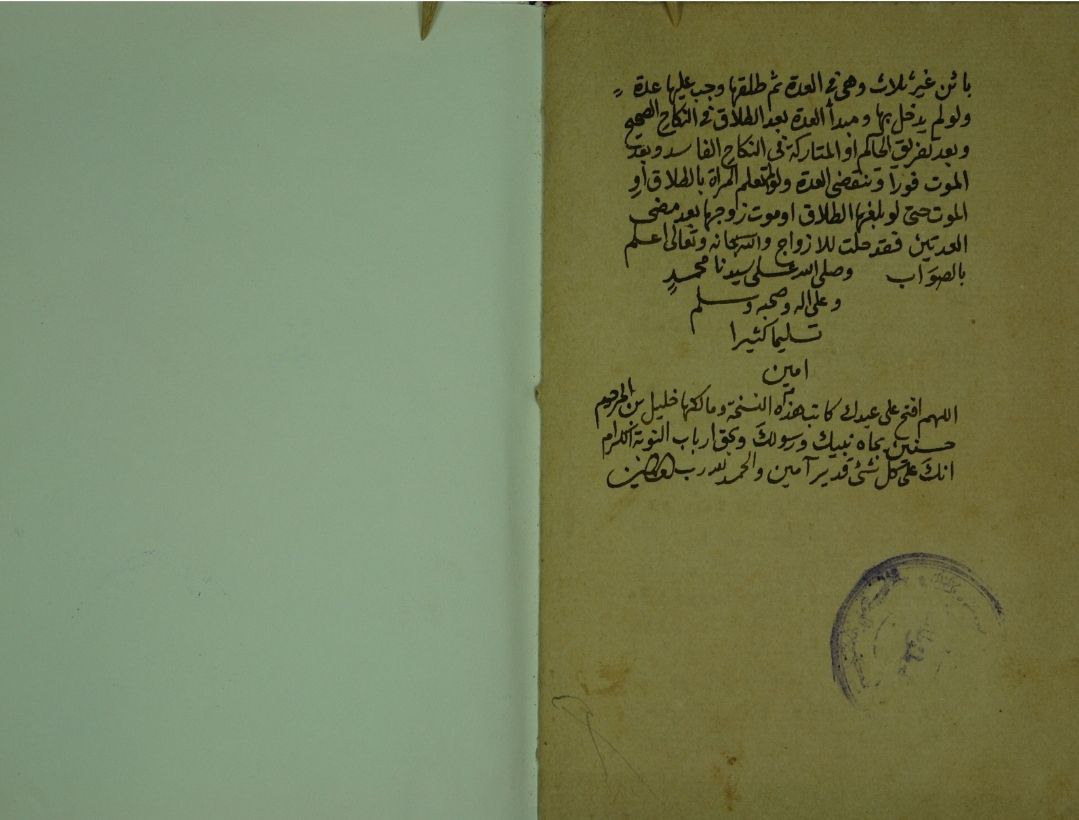 بائن غير ثلاث وهى فى العدة ثم طلقها وجب عليها عدة
ولو لم يدخل بها ومبدأ العدة بعد الطلاق فى النكاح الصحيح
وبعد تفريق الحاكم او المتاركة فى النكاح الفاسد وبعد
الموت فورا وتنقضى العدة ولو لم تعلم المرأة بالطلاق او
الموت حتى لو بلغها الطلاق او موت زوجها بعد مضى
العدتين فقد حلت للازواج والله سبحانه وتعالى اعلم
بالصواب وصلى الله على سيدنا محمدٍ
وعلى اله وصحبه وسلم
تسليما كثيرا
امين
اللهم افتح على عبدك كاتب هذه النسخة ومالكها خليل بن
حسنين بجاه نبيك ورسولك وبحق ارباب النوبة الكرام
انك على كل شئ قدير آمين والحمد لله رب العالمين